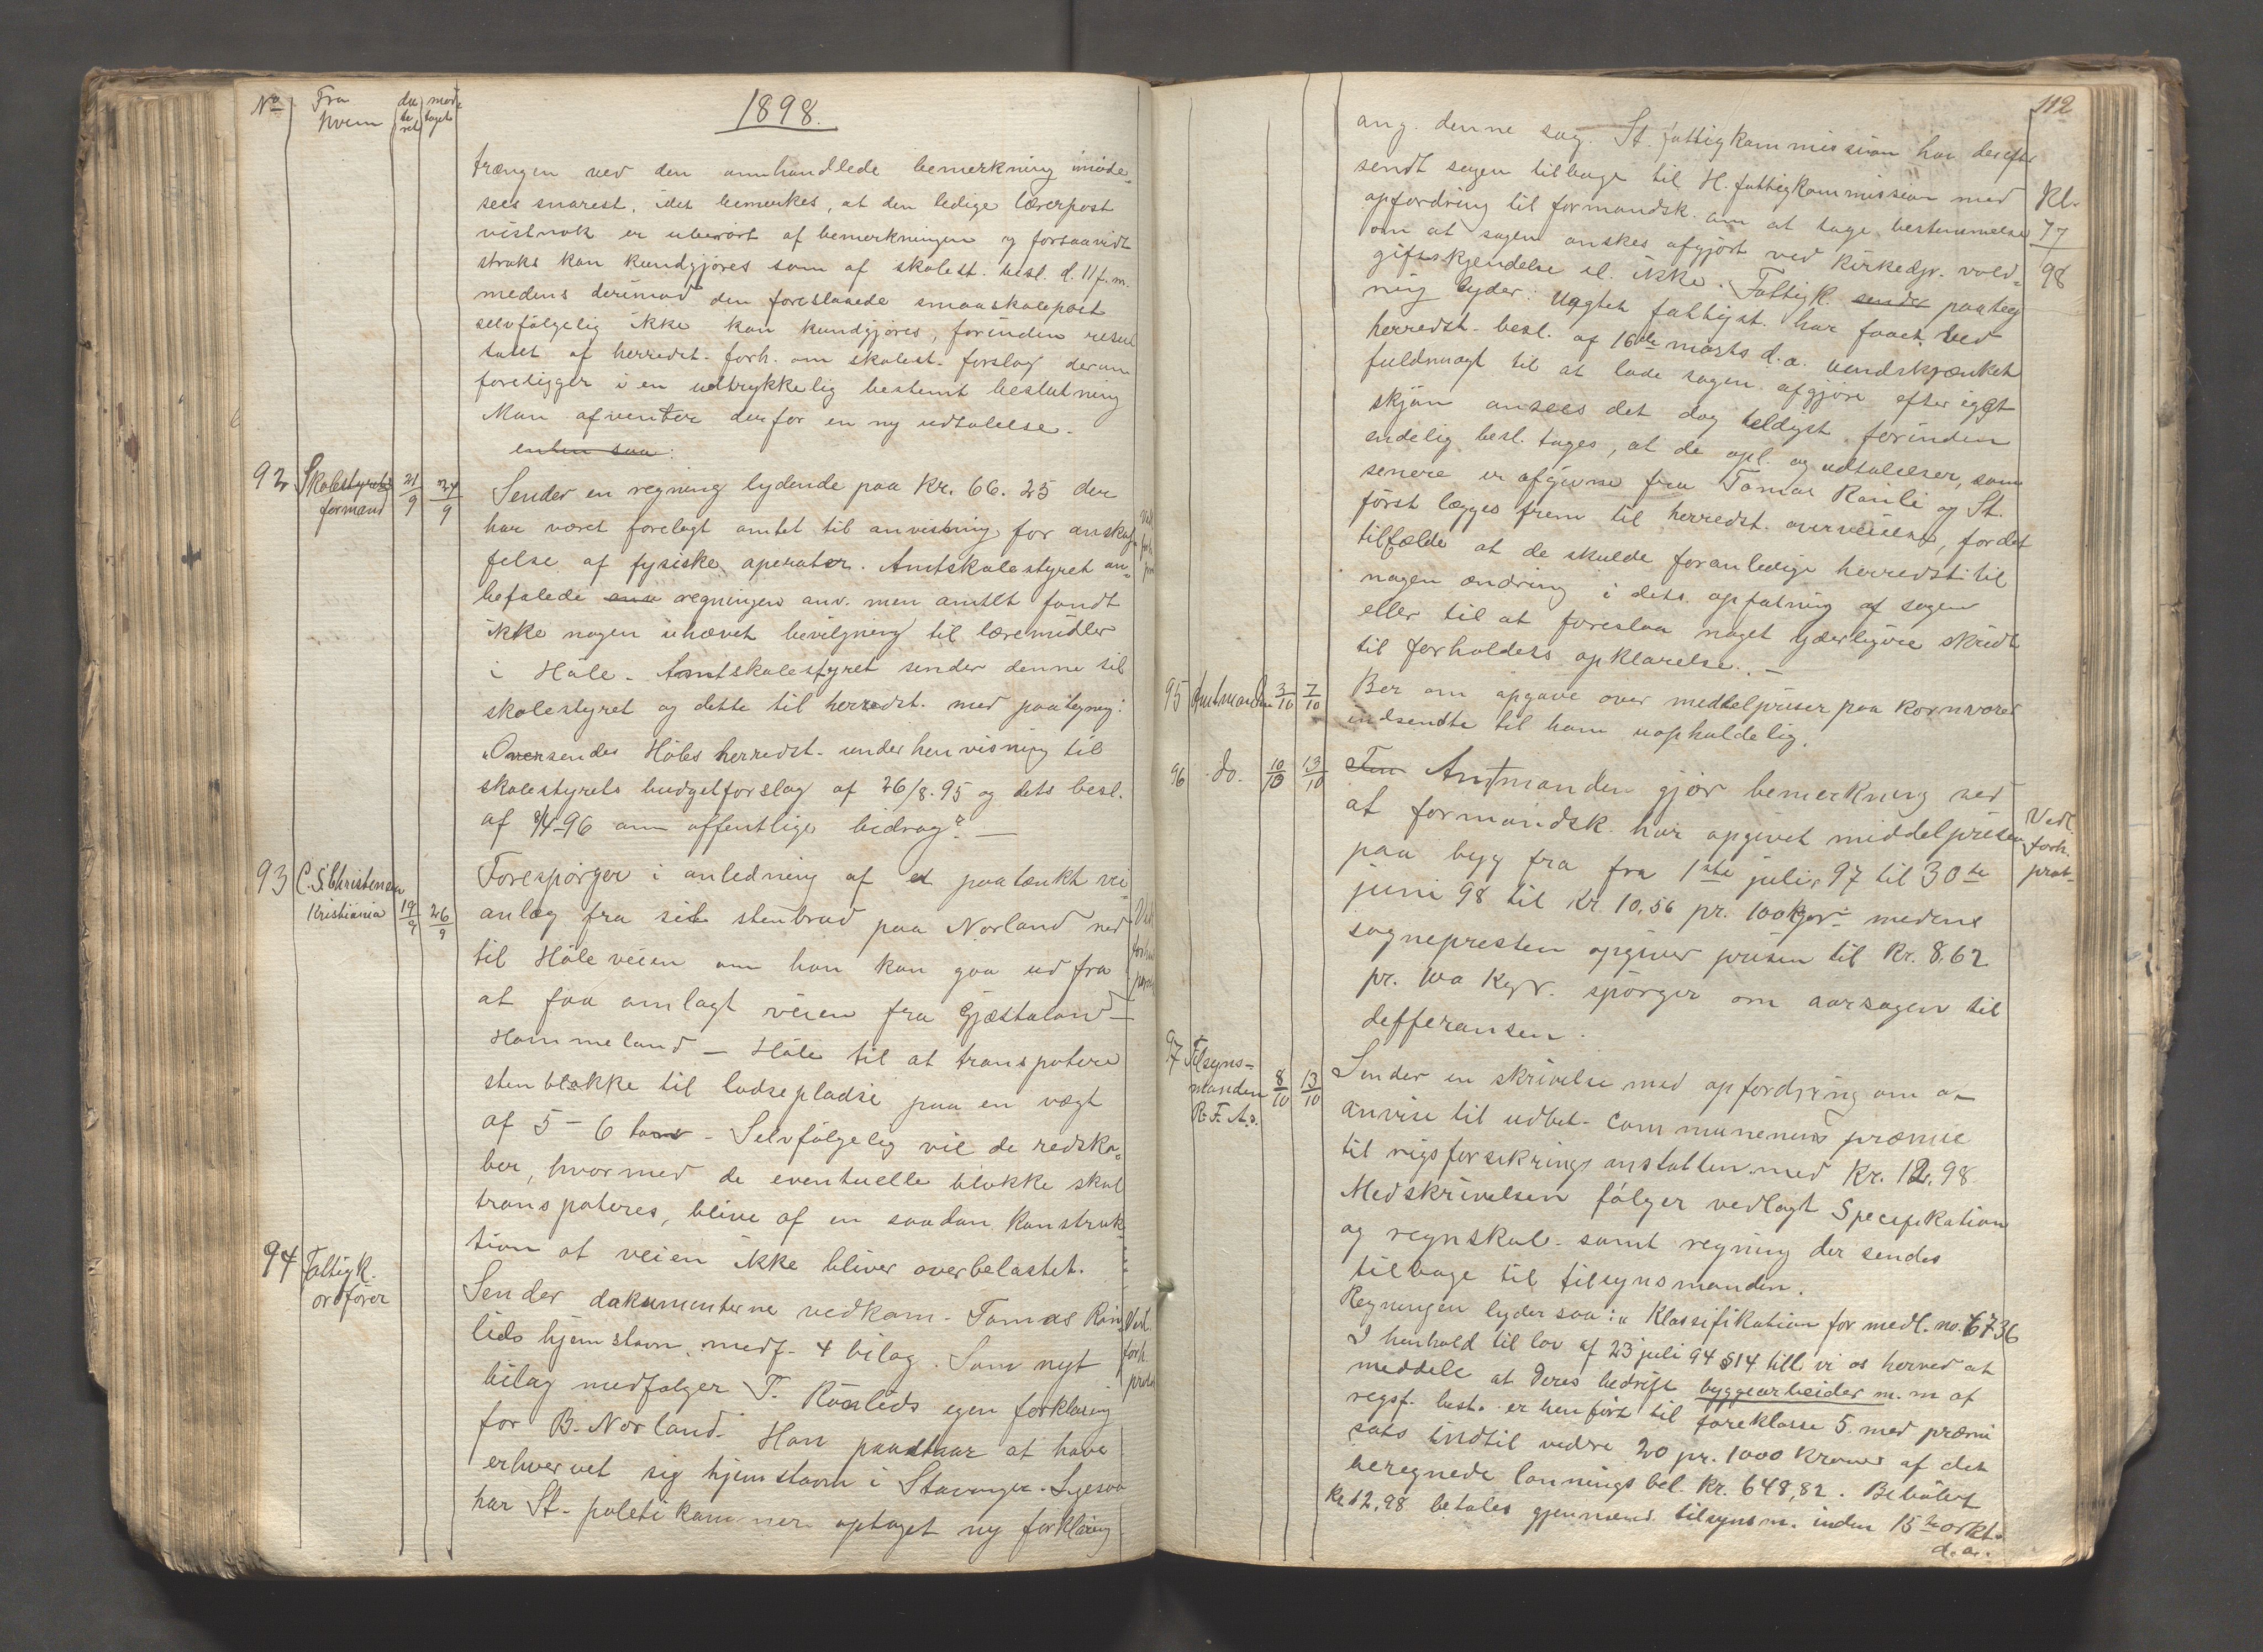 No
Fra hvem
da te ret
mod taget
1898.
trængen ved den omhandlede bemerkning imøde-
sees snarest, idet bemerkes, at den ledige lærerpost
vistnok er uberørt af bemerkningen og forsaavidt
straks kan kundgjøres som af skolest. besl. d. 11 f. m.
medens derimod den foreslaaede smaaskolepost
selvfølgelig ikke kan kundgjøres, forinden resul
tatet af herredst. forh. om skolest. forslag derom
foreligger i en udtrykkelig bestemt beslutning
Man afventer derfor en ny udtalelse.
enten saa:
92 Skolestyrets formand 21/9 24/9
Sender en regning lydende paa Kr. 66.25 der
har været forelagt amtet til anvisning for anskaf-
felse af fysiske aperater. Amtskolestyret an-
befalede regningen anv. men amtet fandt
ikke nogen uhævet bevilgning til læremidler
i Høle. Amtskolestyret sender denne til
skolestyret og dette til herredst. med paategning:
"Oversendes Høles herredst. under henvisning til
skolestyrets budgetforslag af 26/8.95 og dets besl.
af 8/4-96 om offentlige bidrag". —
93 C. S. Christensen Kristiania 19/9 26/9
Forespørger i anledning af et paatænkt vei
anlæg fra sit stenbrud paa Norland ned
til Høleveien om han kan gaa ud fra
at faa omlagt veien fra Gjæstaland —
Hommeland — Høle til at transpotere
stenblokke til ladseplads paa en vægt
af 5 - 6 tons - Selvfølgelig vil de redska-
ber, hvormed de eventuelle blokke skal
transpoteres, blive af en saadan konstruk
tion at veien ikke bliver overbelastet.
94 Fattigk. ordfører
Sender dokumenterne vedkom. Tomas Rön
lids hjemstavn, medf. 4 bilag. Som nyt
bilag medfølger T. Rönlids egen forklaring
for B. Norland. Han paastaar at have
erhvervet sig hjemstavn i Stavanger. Ligesaa
har St. politikammer optaget ny forklaring
Vedl. forh. prot.
112
ang. denne sag. St. fattigkommission har derefter
sendt sagen tilbage til H. fattigkommission med
opfordring til formandsk. om at tage bestemmelse
om at sagen ønskes afgjort ved Kirkedp. vold-
giftskjendelse el. ikke. Fattigk. sender paateg
ning lyder: Uagtet fattigst. har faaet ved
herredst. besl. af 16de marts d. a. uindskrænket
fuldmagt til at lade sagen afgjøre efter eget
skjøn ansees det dog heldigst forinden
endelig besl. tages, at de opl. og udtalelser, som
senere er afgivne fra Tomas Rönli og St.
først lægges frem til herredst. overveielse, for det
tilfælde at de skulde foranledige herredst. til
nogen ændring i dets opfatning af sagen
eller til at foreslaa noget yderligere skridt
til forholdets opklarelse. —
Kl. 77/98
95 Amtmanden 3/10 7/10
Ber om opgave over meddelpriser paa kornvarer
indsendte til ham uopholdelig.
96 do. 10/10 13/10
Amtmanden gjør bemerkning ved
at formandsk. har opgivet middelprisen
paa byg fra fra 1ste juli 97 til 30te
juni 98 til Kr. 10,56 pr. 100 kgr. medens
sognepresten opgiver prisen til Kr. 8,62
pr. 100 Kgr. spørger om aarsagen til
defferansen.
Vedl. forh. prot.
97 Tilsyns-manden R. F. A. 8/10 13/10
Sender en skrivelse med opfordring om a-
anvise til udbet. communenens præmie
til rigsforsikrings anstalten med Kr. 12,98
Medskrivelsen følger vedlagt Specefikation
og regnskab samt regning der sendes
tilbage til tilsynsmanden.
Regningen lyder saa: "Klassifikation for medl. no. 6736
I henhold til lov af 23 juli 94 §14 till. vi os herved at
meddele at Deres bedrift byggearbeider m. m af
regsf. best. er henført til fareklasse 5. med præmi
sats indtil videre 20 pr. 1000 kroner af det
beregnede lønnings bel. Kr. 648,82. Beløbet
Kr. 12,98 betales gjennem tilsynsm. inden 15te okt.
d. a.